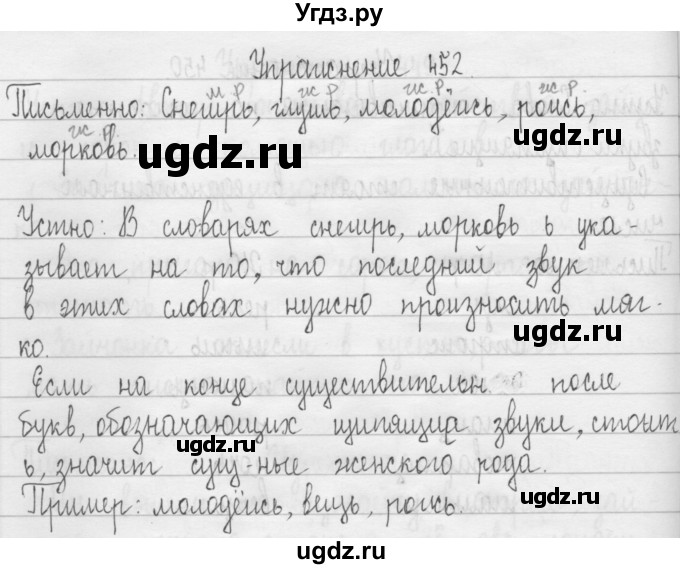 Угдз.ру
Упражнение 452.
м.р. ж.р. ж.р. ж.р.
Письменно: Снегирь, глушь, молодёжь, рожь,
ж.р.
морковь.
ugdz.ru
ugdz.ru
Устно: В словарях снегирь, морковь ь ука
зывает на то, что последний звук
в этих словах нужно произносить мяг-
ко.
ugdz.ru
Если на конце существительн. после
букв, обозначающих шипящие звуки, стоит
ugdz.ru
ь, значит сущ-ные женского рода.
Пример: молодёжь, вещь, рожь.
ugdz.ru
ugdz.ru